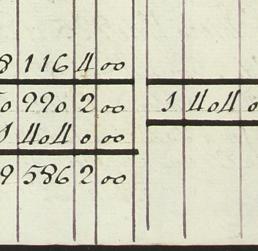 8 116 4 00
0 990 2 00 1 404 0
1 404 0 00
9 586 2 00